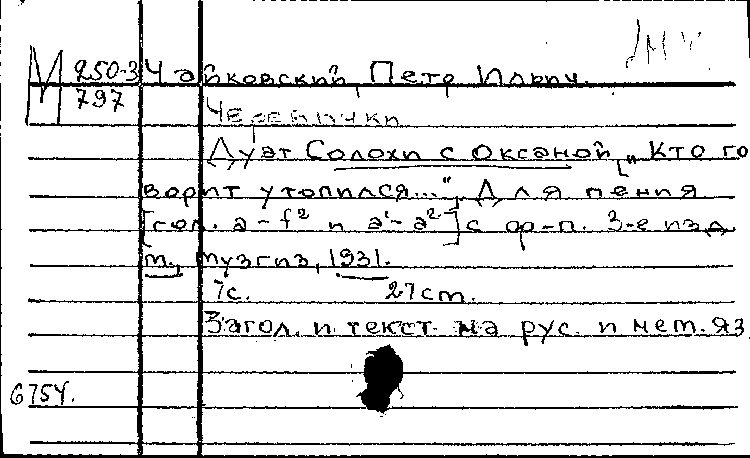 М 250-3 Чайковский, Петр Ильич.
797
Черевички
Дуэт Солохи с Оксаной „Кто го
ворит утопился...". Для пения
[сол. a – f² и a¹ – a²] с ф-п. 3-е изд.
м., музгиз, 1931.
7с. 27cm.
Загол. и текст на рус. и нем. яз
675Ч.